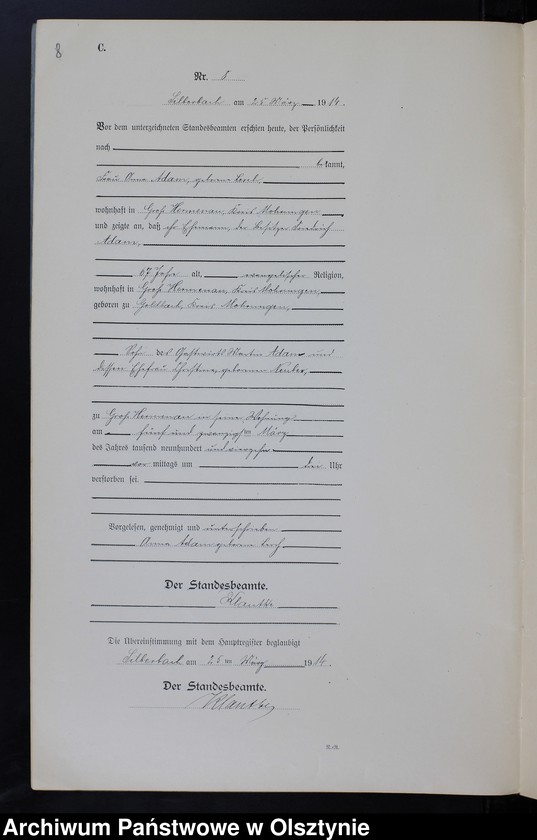 8
C.
Nr. 8
Silberbach am 25 März 1914.
Vor dem unterzeichneten Standesbeamten erschien heute, der Persönlichkeit
nach
bekannt,
Frau Anna Adam, geborene
wohnhaft in Groß Hermenau, Kreis Mohrungen
und zeigte an, daß ihr Ehemann, der Besitzer Friedrich
Adam,
67 Jahre alt, evangelischer Religion,
wohnhaft in Groß Hermenau, Kreis Mohrungen,
geboren zu Goldbach, Kreis Mohrungen,
Sohn des Gastwirts Martin Adam und
dessen Ehefrau Christine, geborenen
zu Groß Hermenau in seiner Wohnung
am fünf und zwanzigsten März
des Jahres tausend neunhundert und vierzehn
vor mittags um drei Uhr
verstorben sei.
Vorgelesen, genehmigt und unterschrieben
Anna Adam geborene
Der Standesbeamte.
Klautke
Die Übereinstimmung mit dem Hauptregister beglaubigt
Silberbach am 25 ten März 1914.
Der Standesbeamte.
Klautke
Archiwum Państwowe w Olsztynie